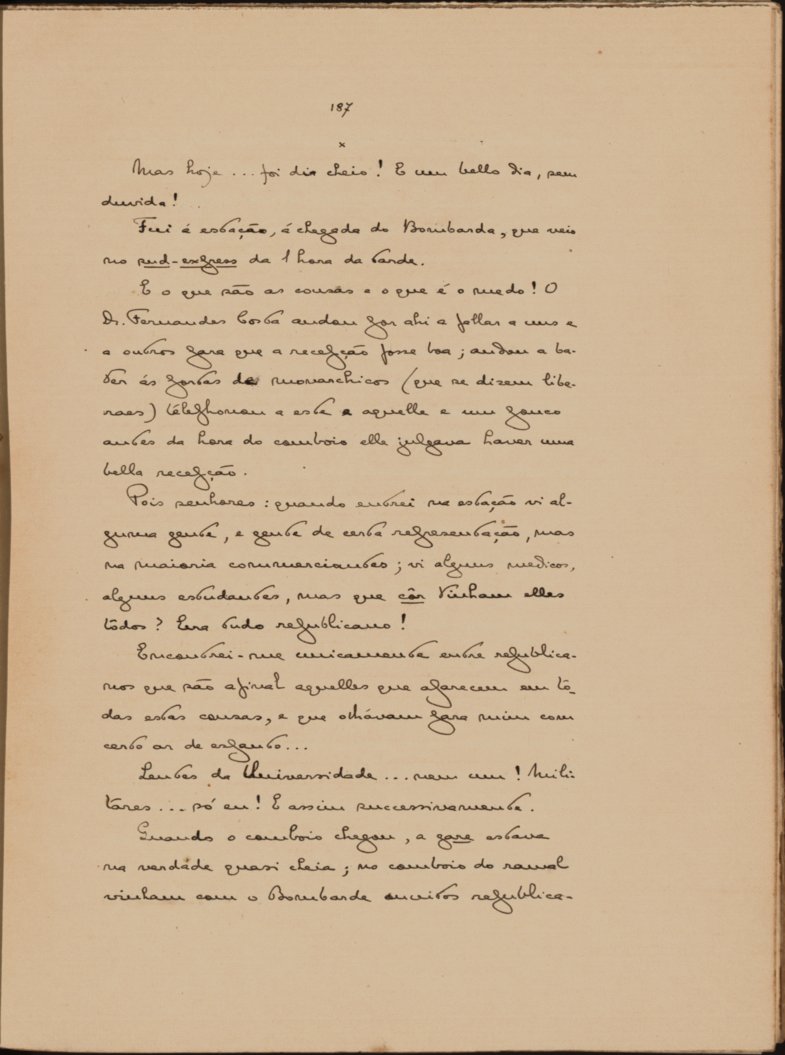 187
x
Mas hoje ... foi dia cheio! E um bello dia, sem
duvida!
Fui á estação, á chegada do Bombarda, que veio
no sud-express da 1 hora da tarde.
E o que são as cousas e o que é o medo! O
Dr. Fernandes Costa andou por ahi a fallar a uns e
a outros para que a recepção fosse boa; andou a ba-
ter ás portas de monarchicos (que se dizem libe-
raes) télephonou a este e aquelle e um pouco
antes da hora do comboio elle julgava haver uma
bella recepção.
Pois senhores: quando entrei na estação vi al-
guma gente, e gente de certa representação, mas
na maioria commerciantes; vi alguns medicos,
alguns estudantes, mas que côr vinham elles
tôdos? Era tudo republicano!
Encontrei-me unicamente entre republica-
nos que são afinal aquelles que aparecem em tô-
das estas cousas, e que olhávam para mim com
certo ar de espanto...
Lentes da Universidade ... nem um! Mili-
tares ... só eu! E assim successivamente.
Quando o comboio chegou, a gare estava
na verdade quasi cheia; no comboio do ramal
vinham com o Bombarda muitos republica-